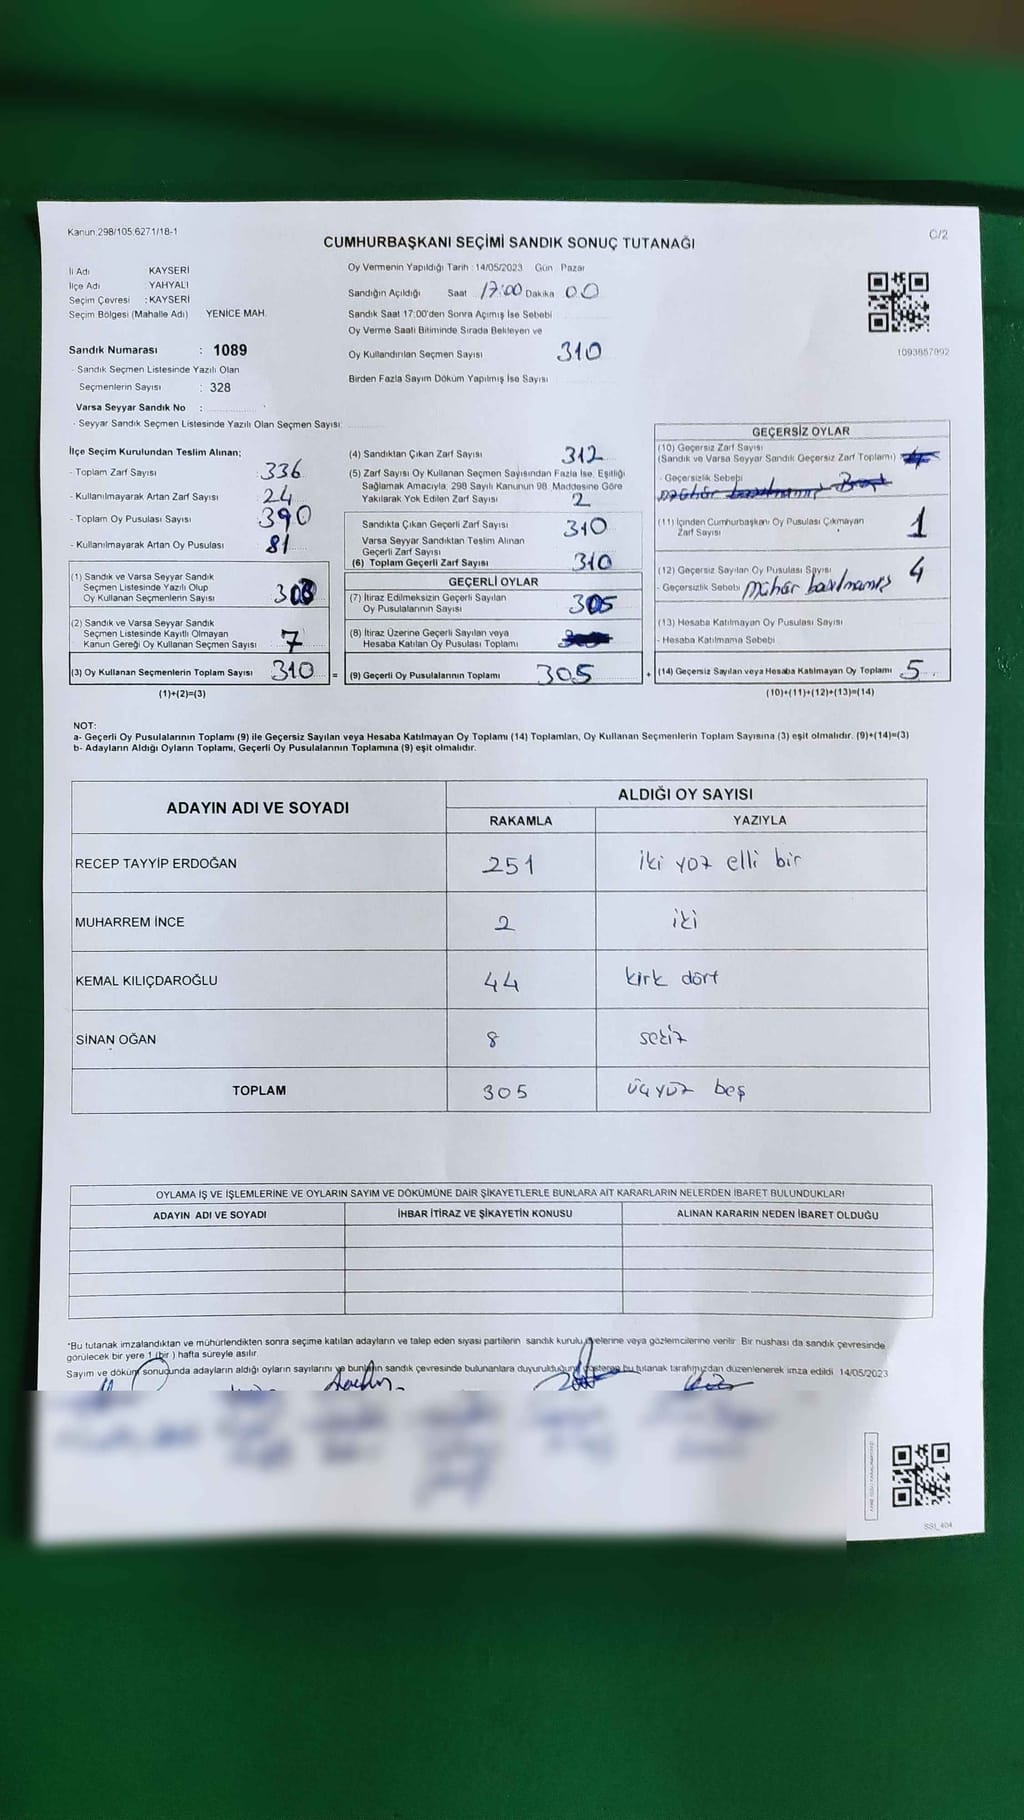 Kanun:298/105,6271/18-1
C/2
CUMHURBAŞKANI SEÇİMİ SANDIK SONUÇ TUTANAĞI
İl Adı KAYSERİ
İlçe Adı YAHYALI
Seçim Çevresi : KAYSERİ
Seçim Bölgesi (Mahalle Adı) YENİCE MAH.
Sandık Numarası : 1089
- Sandık Seçmen Listesinde Yazılı Olan
Seçmenlerin Sayısı : 328
Varsa Seyyar Sandık No :
- Seyyar Sandık Seçmen Listesinde Yazılı Olan Seçmen Sayısı:
Oy Vermenin Yapıldığı Tarih : 14/05/2023 Gün Pazar
Sandığın Açıldığı Saat 17:00 Dakika 00
Sandık Saat 17:00'den Sonra Açımış İse Sebebi
Oy Verme Saati Bitiminde Sırada Bekleyen ve
Oy Kullandırılan Seçmen Sayısı 310
Birden Fazla Sayım Döküm Yapılmış İse Sayısı
1093857092
İlçe Seçim Kurulundan Teslim Alınan;
- Toplam Zarf Sayısı 336
- Kullanılmayarak Artan Zarf Sayısı 24
- Toplam Oy Pusulası Sayısı 390
- Kullanılmayarak Artan Oy Pusulası 81
(1) Sandık ve Varsa Seyyar Sandık
Seçmen Listesinde Yazılı Olup
Oy Kullanan Seçmenlerin Sayısı 303
(2) Sandık ve Varsa Seyyar Sandık
Seçmen Listesinde Kayıtlı Olmayan
Kanun Gereği Oy Kullanan Seçmen Sayısı 7
(3) Oy Kullanan Seçmenlerin Toplam Sayısı 310 =
(1)+(2)=(3)
(4) Sandıktan Çıkan Zarf Sayısı 312
(5) Zarf Sayısı Oy Kullanan Seçmen Sayısından Fazla İse, Eşitliği
Sağlamak Amacıyla, 298 Sayılı Kanunun 98. Maddesine Göre
Yakılarak Yok Edilen Zarf Sayısı 2
Sandıkta Çıkan Geçerli Zarf Sayısı 310
Varsa Seyyar Sandıktan Teslim Alınan
Geçerli Zarf Sayısı
(6) Toplam Geçerli Zarf Sayısı 310
GEÇERLİ OYLAR
(7) İtiraz Edilmeksizin Geçerli Sayılan
Oy Pusulalarının Sayısı 305
(8) İtiraz Üzerine Geçerli Sayılan veya
Hesaba Katılan Oy Pusulası Toplamı
(9) Geçerli Oy Pusulalarının Toplamı 305 +
GEÇERSİZ OYLAR
(10) Geçersiz Zarf Sayısı
(Sandık ve Varsa Seyyar Sandık Geçersiz Zarf Toplamı)
- Geçersizlik Sebebi
(11) İçinden Cumhurbaşkanı Oy Pusulası Çıkmayan
Zarf Sayısı 1
(12) Geçersiz Sayılan Oy Pusulası Sayısı 4
- Geçersizlik Sebebi mühür basılmamış
(13) Hesaba Katılmayan Oy Pusulası Sayısı
- Hesaba Katılmama Sebebi
(14) Geçersiz Sayılan veya Hesaba Katılmayan Oy Toplamı 5
(10)+(11)+(12)+(13)=(14)
NOT:
a- Geçerli Oy Pusulalarının Toplamı (9) ile Geçersiz Sayılan veya Hesaba Katılmayan Oy Toplamı (14) Toplamları, Oy Kullanan Seçmenlerin Toplam Sayısına (3) eşit olmalıdır. (9)+(14)=(3)
b- Adayların Aldığı Oyların Toplamı, Geçerli Oy Pusulalarının Toplamına (9) eşit olmalıdır.
ADAYIN ADI VE SOYADI ALDIĞI OY SAYISI
RAKAMLA YAZIYLA
RECEP TAYYİP ERDOĞAN 251 iki yüz elli bir
MUHARREM İNCE 2 iki
KEMAL KILIÇDAROĞLU 44 kırk dört
SİNAN OĞAN 8 sekiz
TOPLAM 305 üçyüz beş
OYLAMA İŞ VE İŞLEMLERİNE VE OYLARIN SAYIM VE DÖKÜMÜNE DAİR ŞİKAYETLERLE BUNLARA AİT KARARLARIN NELERDEN İBARET BULUNDUKLARI
ADAYIN ADI VE SOYADI İHBAR İTİRAZ VE ŞİKAYETİN KONUSU ALINAN KARARIN NEDEN İBARET OLDUĞU
*Bu tutanak imzalandıktan ve mühürlendikten sonra seçime katılan adayların ve talep eden siyasi partilerin sandık kurulu üyelerine veya gözlemcilerine verilir. Bir nüshası da sandık çevresinde
görülecek bir yere 1 (bir) hafta süreyle asılır.
Sayım ve döküm sonucunda adayların aldığı oyların sayılarını ve bunların sandık çevresinde bulunanlara duyurulduğunu gösteren bu tutanak tarafımızdan düzenlenerek imza edildi 14/05/2023
SSI_404